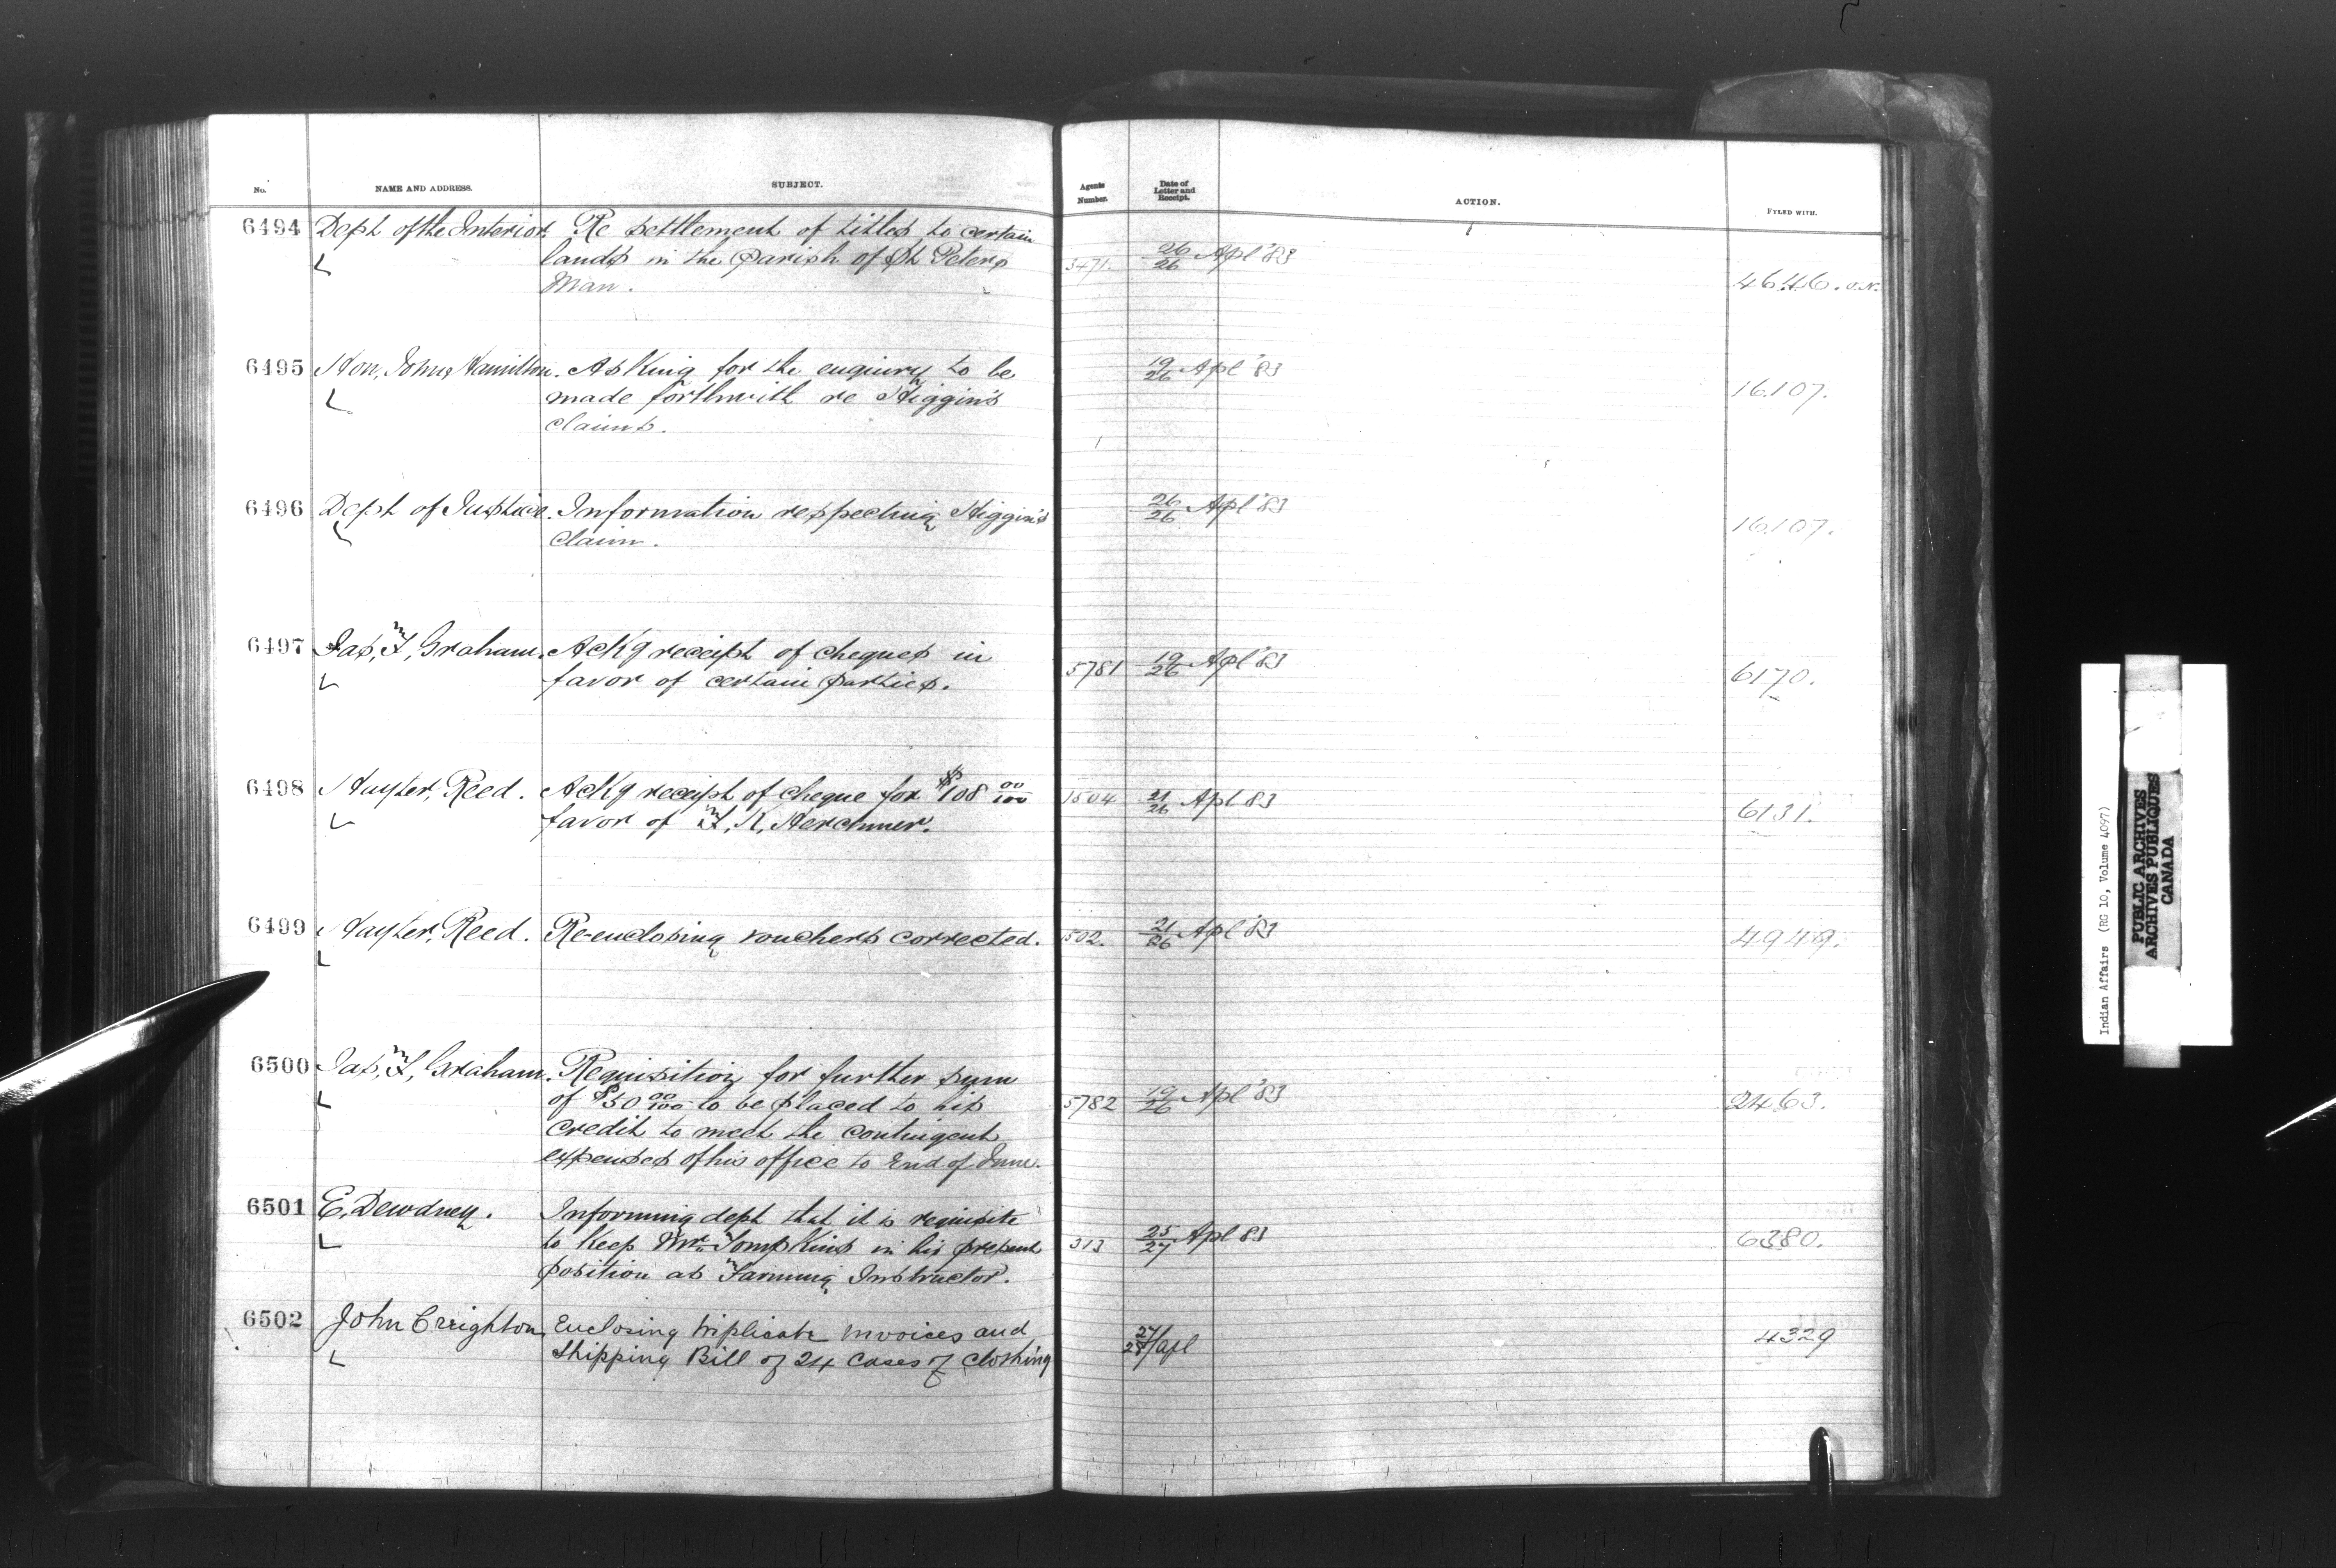 No. NAME AND ADDRESS. SUBJECT. Agents Number. Date of Letter and Receipt. ACTION. FYLED WITH.
6494 Dept of the Interior. Re settlement of titles to certain
lands in the Parish of St Peters 3471. 26/26 Apl '83
Man. 4646. O.N.
6495 Hon, John, Hamilton. Asking for the enquiry to be 19/26 Apl '83
made forthwith re Higgin's 16.107.
claims.
6496 Dept of Justice. Information respecting Higgin's 26/26 Apl '83
Claim. 16.107.
6497 Jas, F, Graham. Ackg receipt of cheques in
favor of certain parties. 5781 19/26 Apl '83 6170.
6498 Hayter, Reed. Ackg receipt of cheque for $108 00/100 1504 21/26 Apl 83
favor of F, K, Herchmer. 6131.
6499 Hayter, Reed. Re-enclosing vouchers corrected. 502. 21/26 Apl '83 4949.
6500 Jas, F, Graham. Requisition for further sum
of $50 00/100 to be placed to his 5782 19/26 Apl '83 2463.
credit to meet the contingent
expenses of his office to End of June.
6501 E, Dewdney. Informing dept that it is requisite
to keep Mr Tompkins in his present 313 25/27 Apl 83 6380.
position as Farming Instructor.
6502 John Creighton, Enclosing triplicate invoices and 27/28/apl 4329
Shipping Bill of 24 Cases of Clothing
Indian Affairs (RG 10, Volume 4097)
PUBLIC ARCHIVES
ARCHIVES PUBLIQUES
CANADA